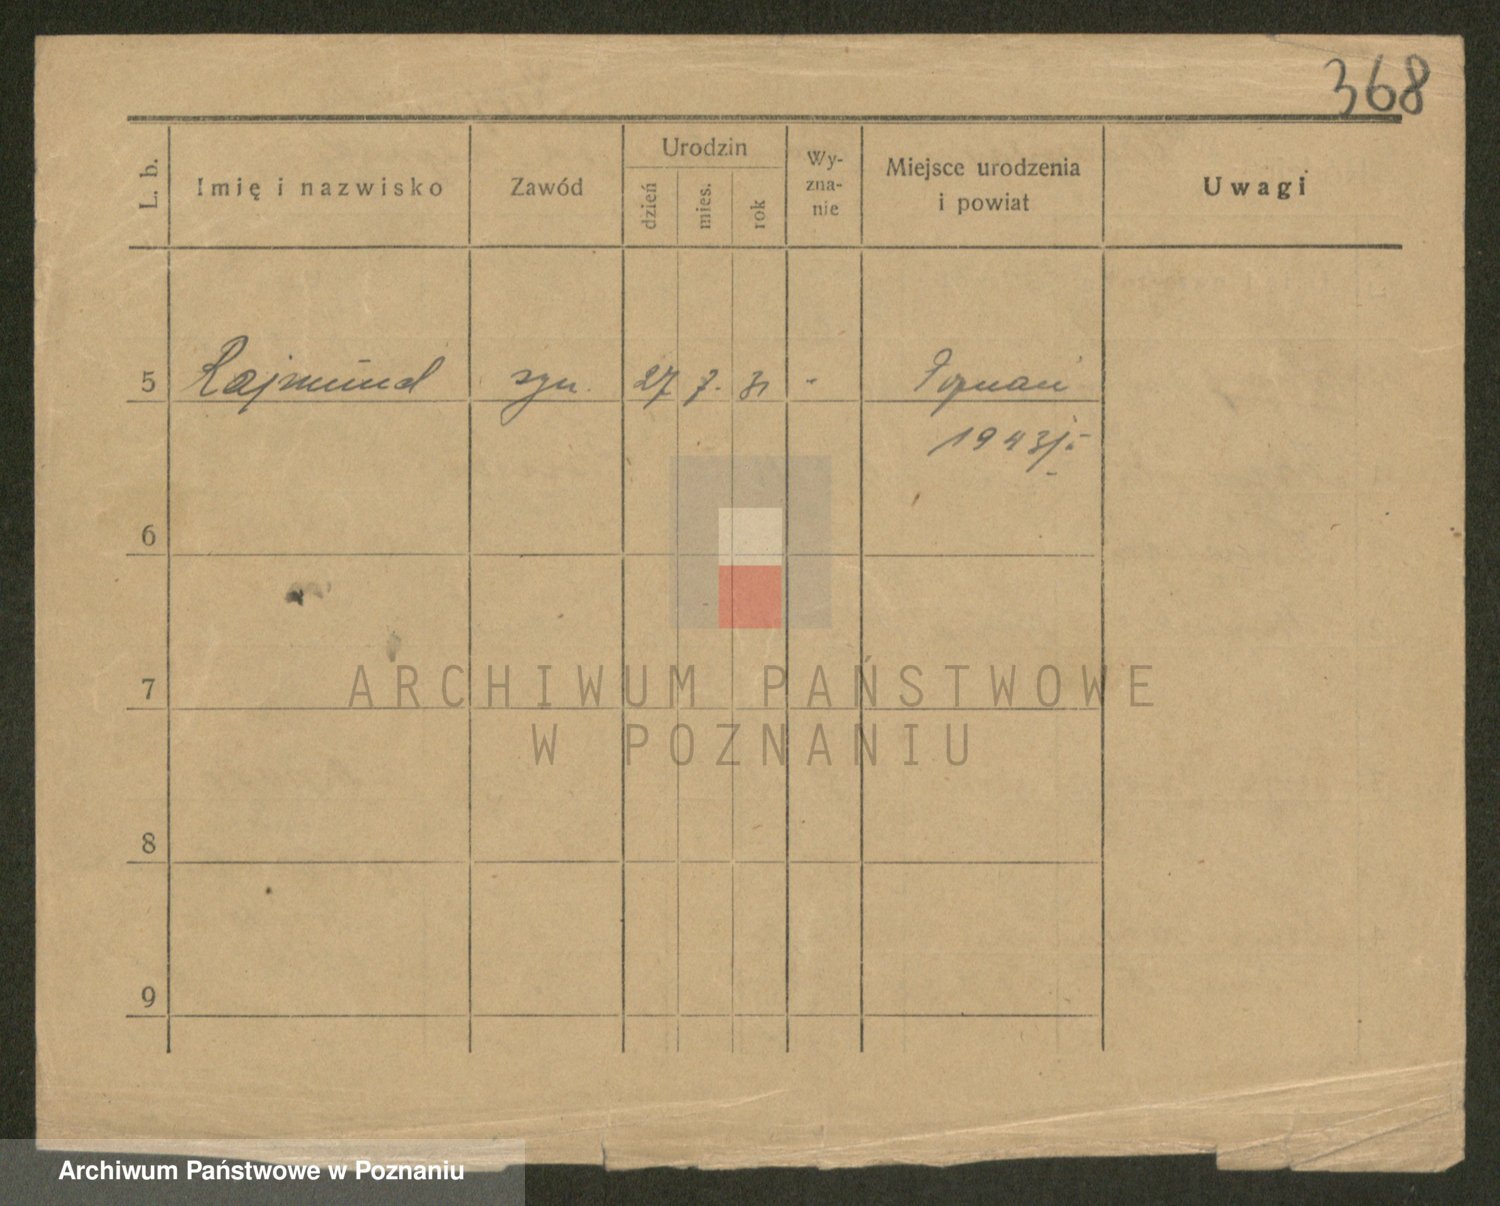 368
L. b.
Imię i nazwisko
Zawód
Urodzin
dzień
mies.
rok
Wy-
zna-
nie
Miejsce urodzenia
i powiat
Uwagi
5 Rajmund syn. 27 7. 31 - Poznań
1943/
6
7
8
9
ARCHIWUM PAŃSTWOWE
W POZNANIU
Archiwum Państwowe w Poznaniu